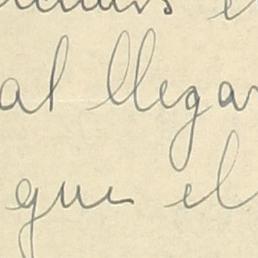 al llegar
que el